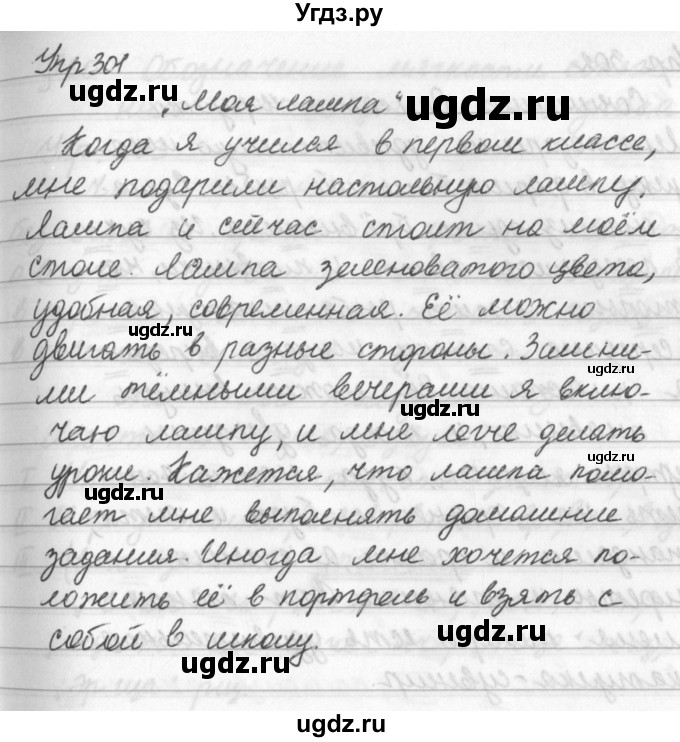 Угдз.ру
Упр 301
ugdz.ru
ugdz.ru
„Моя лампа“
Когда я учился в первом классе,
мне подарили настольную лампу.
Лампа и сейчас стоит на моём
столе. Лампа зеленоватого цвета,
удобная, современная. Её можно
ugdz.ru
двигать в разные стороны. Зимни-
ugdz.ru
ми тёмными вечерами я вклю-
ugdz.ru
чаю лампу, и мне легче делать
ugdz.ru
уроки. Кажется, что лампа помо-
ugdz.ru
гает мне выполнять домашние
задания. Иногда мне хочется по-
ложить её в портфель и взять с
собой в школу.
ugdz.ru
ugdz.ru
ugdz.ru